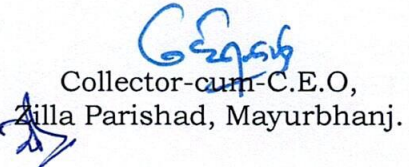 Collector-cum-C.E.O,
Zilla Parishad, Mayurbhanj.